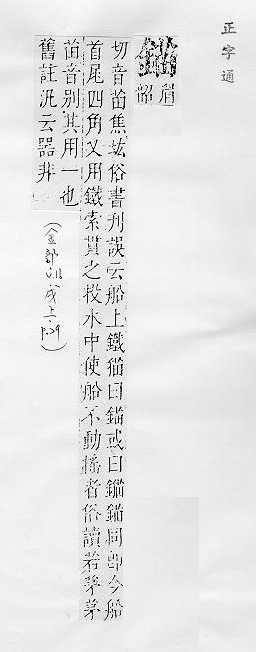 正字通
錨
眉
韶
切音苗焦竑俗書刊誤云船上鐵猫曰錨或曰同即今船
首尾四角叉用鐵索貫之投水中使船不動搖者俗讀若茅茅
苗音別其用一也
舊註汎云器非
(金部 戌上 p.29)